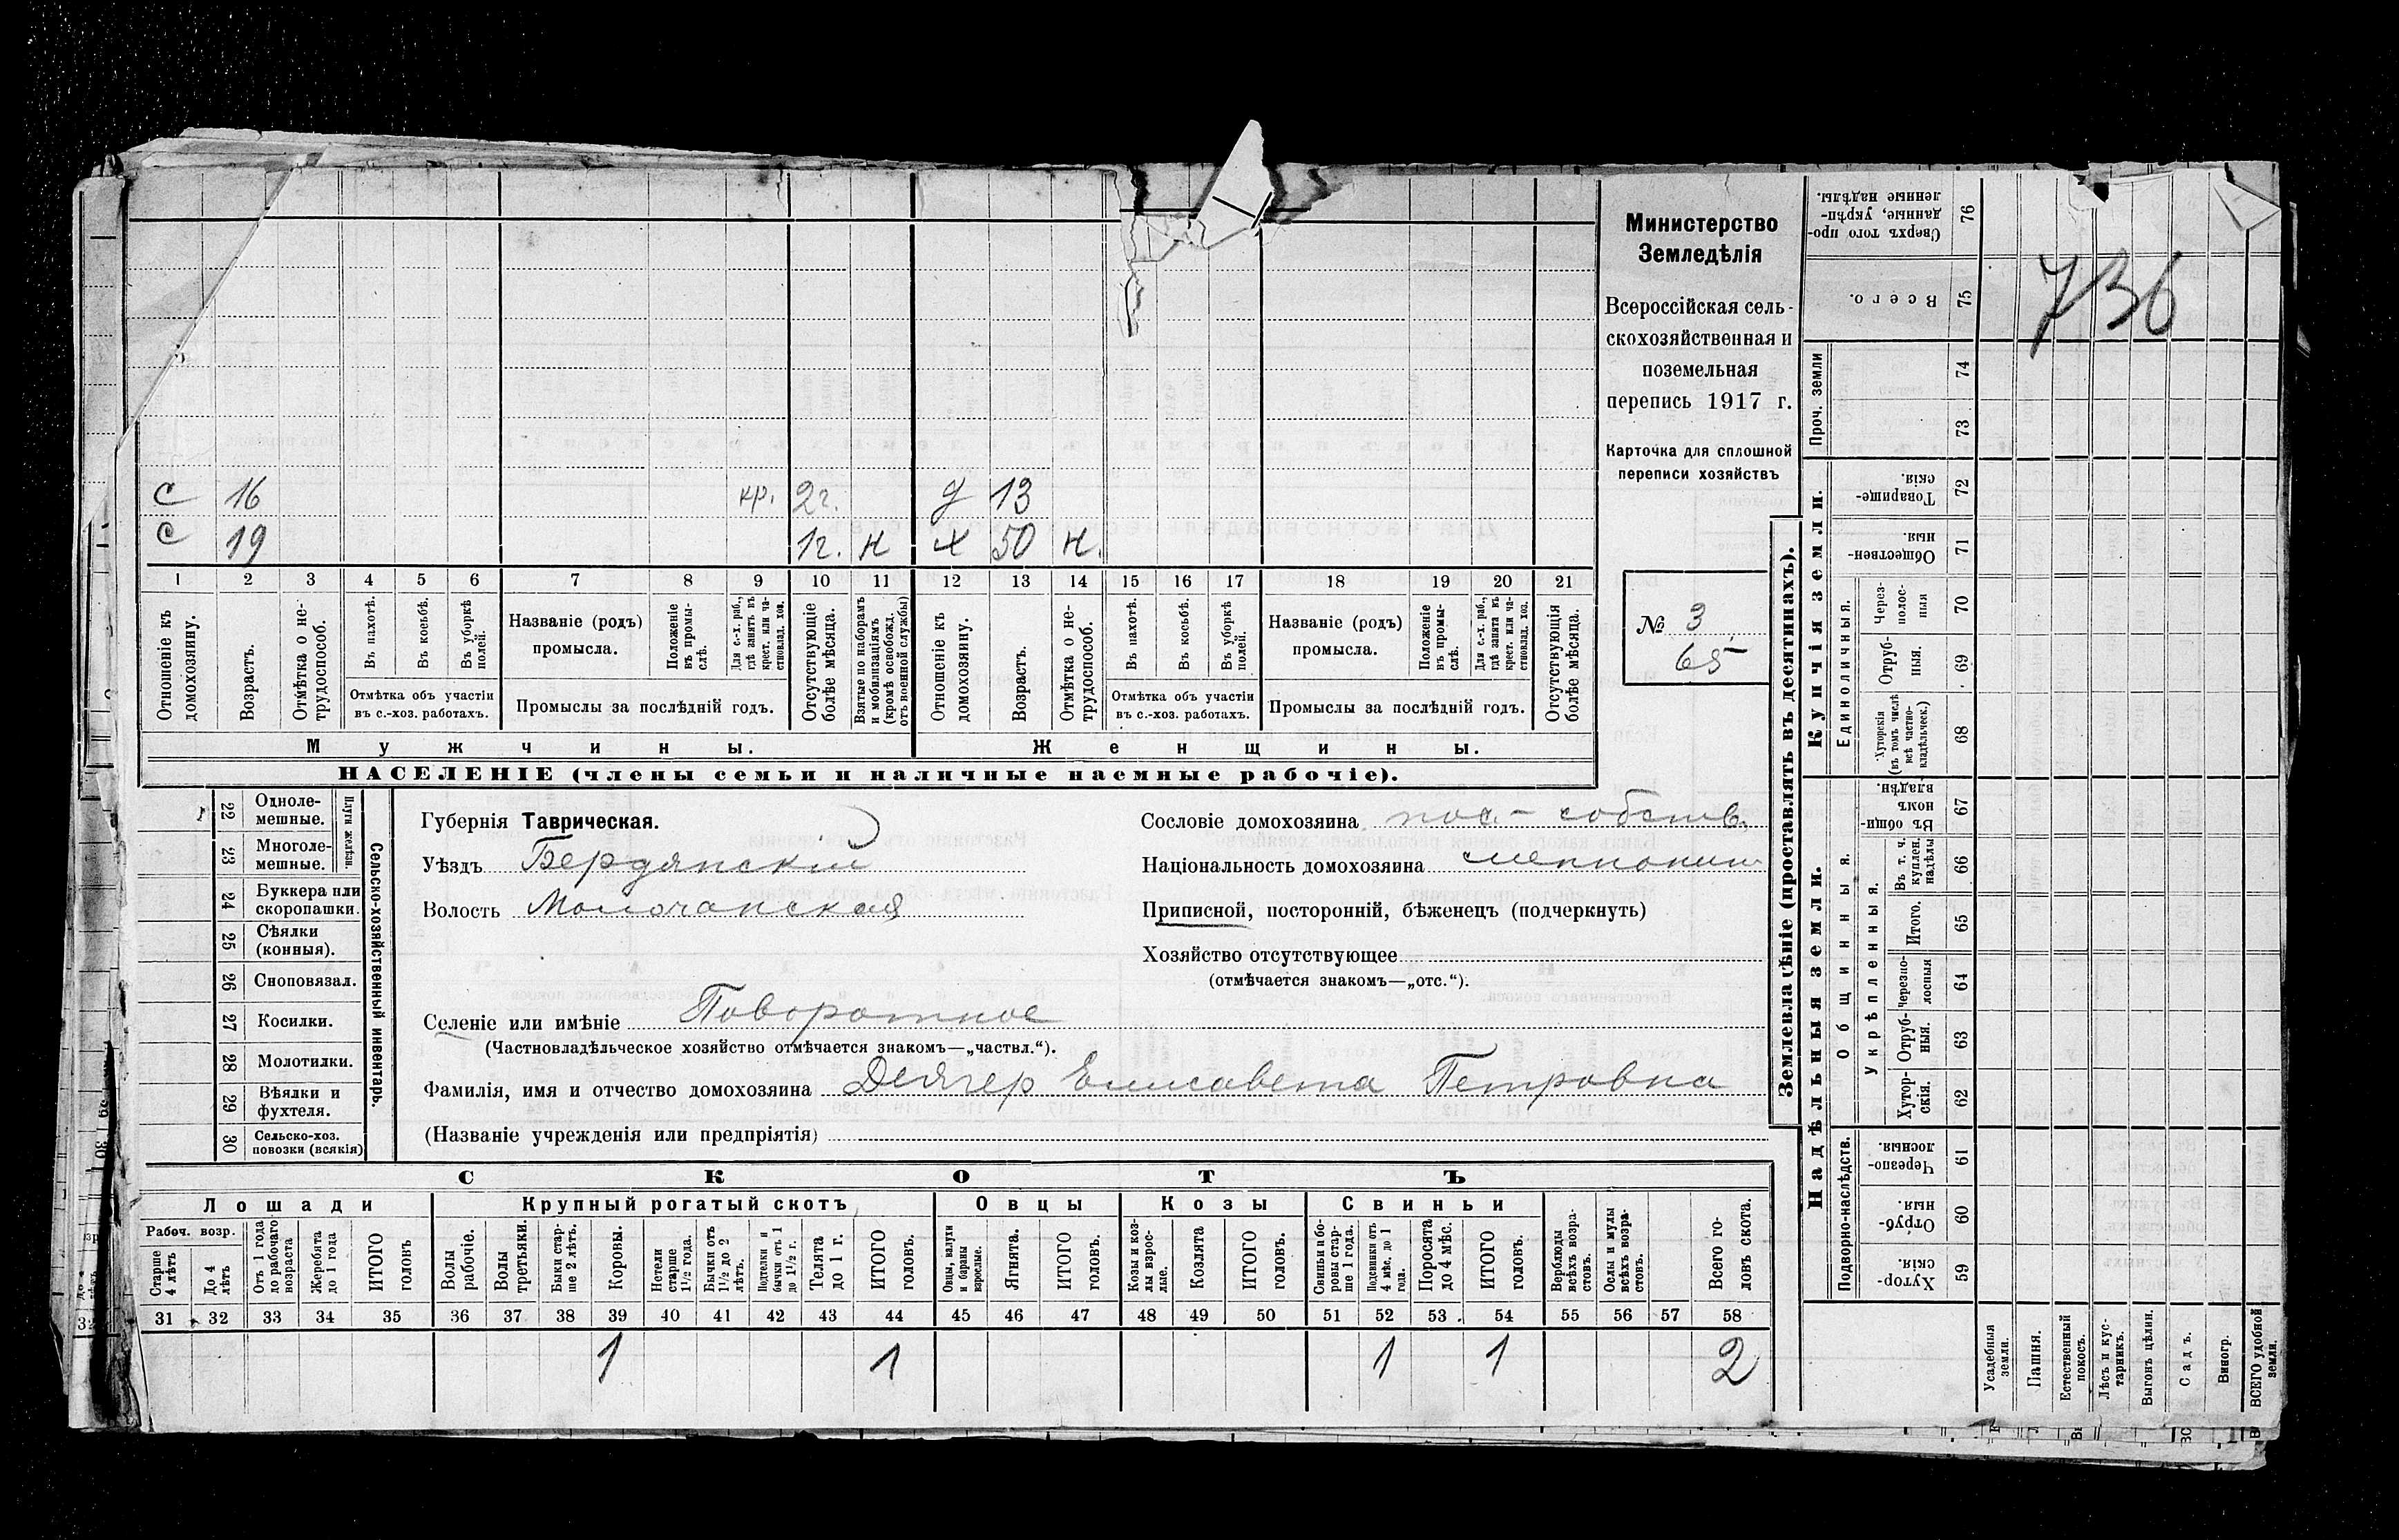 Министерство
Земледѣлія
Всероссійская сель-
скохозяйственная и
поземельная
перепись 1917 г.
Карточка для сплошной
переписи хозяйствъ
№ 3
65
736
с 16 кр. 2г. д 13
с 19 1г. н х 50 н.
1 2 3 4 5 6 7 8 9 10 11 12 13 14 15 16 17 18 19 20 21
Отношеніе къ домохозяину.
Возрастъ.
Отмѣтка о не-трудоспособ.
Въ пахотѣ.
Въ косьбѣ.
Въ уборкѣ полей.
Отмѣтка объ участіи
въ с.-хоз. работахъ.
Названіе (родъ)
промысла.
Положеніе въ промы-слѣ.
Для с.-х. раб., гдѣ занятъ въ крест. или ча-стновлад. хоз.
Промыслы за послѣдній годъ.
Отсутствующіе болѣе мѣсяца.
Взятые по наборамъ и мобилизаціямъ (кромѣ освобожд. отъ военной службы)
Отношеніе къ домохозяину.
Возрастъ.
Отмѣтка о не-трудоспособ.
Въ пахотѣ.
Въ косьбѣ.
Въ уборкѣ полей.
Отмѣтка объ участіи
въ с.-хоз. работахъ.
Названіе (родъ)
промысла.
Положеніе въ промы-слѣ.
Для с.-х. раб., гдѣ занята въ крест. или ча-стновлад. хоз.
Промыслы за послѣдній годъ.
Отсутствующія болѣе мѣсяца.
Мужчины. Женщины.
НАСЕЛЕНІЕ (члены семьи и наличные наемные рабочіе).
22 Одноле-мешные.
23 Многоле-мешные.
Плуги желѣзн.
24 Буккера или скоропашки.
25 Сѣялки (конныя).
26 Сноповязал.
27 Косилки.
28 Молотилки.
29 Вѣялки и фухтеля.
30 Сельско-хоз. повозки (всякія)
Сельско-хозяйственный инвентарь.
Губернія Таврическая.
Уѣздъ Бердянскій
Волость Молочанская
Сословіе домохозяина пос.- собств.
Національность домохозяина меннонит
Приписной, посторонній, бѣженецъ (подчеркнуть)
Хозяйство отсутствующее
(отмѣчается знакомъ—„отс.“).
Селеніе или имѣніе Поворотное
(Частновладѣльческое хозяйство отмѣчается знакомъ—„частвл.“).
Фамилія, имя и отчество домохозяина Деягер Елисавета Петровна
(Названіе учрежденія или предпріятія)
СКОТЪ
Лошади Крупный рогатый скотъ Овцы Козы Свиньи
Рабоч. возр.
Старше 4 лѣтъ
До 4 лѣтъ
Отъ 1 года до рабочаго возраста
Жеребята до 1 года
ИТОГО головъ
Волы рабочіе.
Волы третьяки.
Быки стар-ше 2 лѣтъ.
Коровы.
Нетели старше 1½ года.
Бычки отъ 1½ до 2 лѣтъ.
Подтелки и бычки отъ 1 до 1½ г.
Телята до 1 г.
ИТОГО головъ.
Овцы, валухи и бараны взрослые.
Ягнята.
ИТОГО головъ.
Козы и коз-лы взрос-лые.
Козлята
ИТОГО головъ.
Свиньи и бо-ровы стар-ше 1 года.
Подсвинки отъ 4 мѣс. до 1 года.
Поросята до 4 мѣс.
ИТОГО головъ.
Верблюды всѣхъ возра-стовъ.
Ослы и мулы всѣхъ возра-стовъ.
Всего го-ловъ скота.
31 32 33 34 35 36 37 38 39 40 41 42 43 44 45 46 47 48 49 50 51 52 53 54 55 56 57 58
1 1 1 1 2
Землевладѣніе (проставлять въ десятинахъ).
Надѣльныя земли. Купчія земли. Проч. земли
Подворно-наслѣдств. Общинныя. Единоличныя.
Укрѣпленныя.
Хутор-скія. 59
Отруб-ныя. 60
Черезпо-лосныя. 61
Хутор-скія. 62
Отруб-ныя. 63
Черезпо-лосныя 64
Итого. 65
Въ т. ч. куплен. надѣлы 66
Въ общи-номъ владѣн. 67
Хуторскія (въ томъ числѣ всѣ частно-владѣльческ.) 68
Отруб-ныя. 69
Через-полос-ныя 70
Обществен-ныя. 71
Товарище-скія. 72
73
74
Всего. 75
Сверхъ того про-данные, укрѣп-ленные надѣлы. 76
Усадебныя земли.
Пашня.
Естественный покосъ.
Лѣсъ и кус-тарникъ.
Выгонъ цѣлин.
Садъ.
Виногр.
ВСЕГО удобной земли.